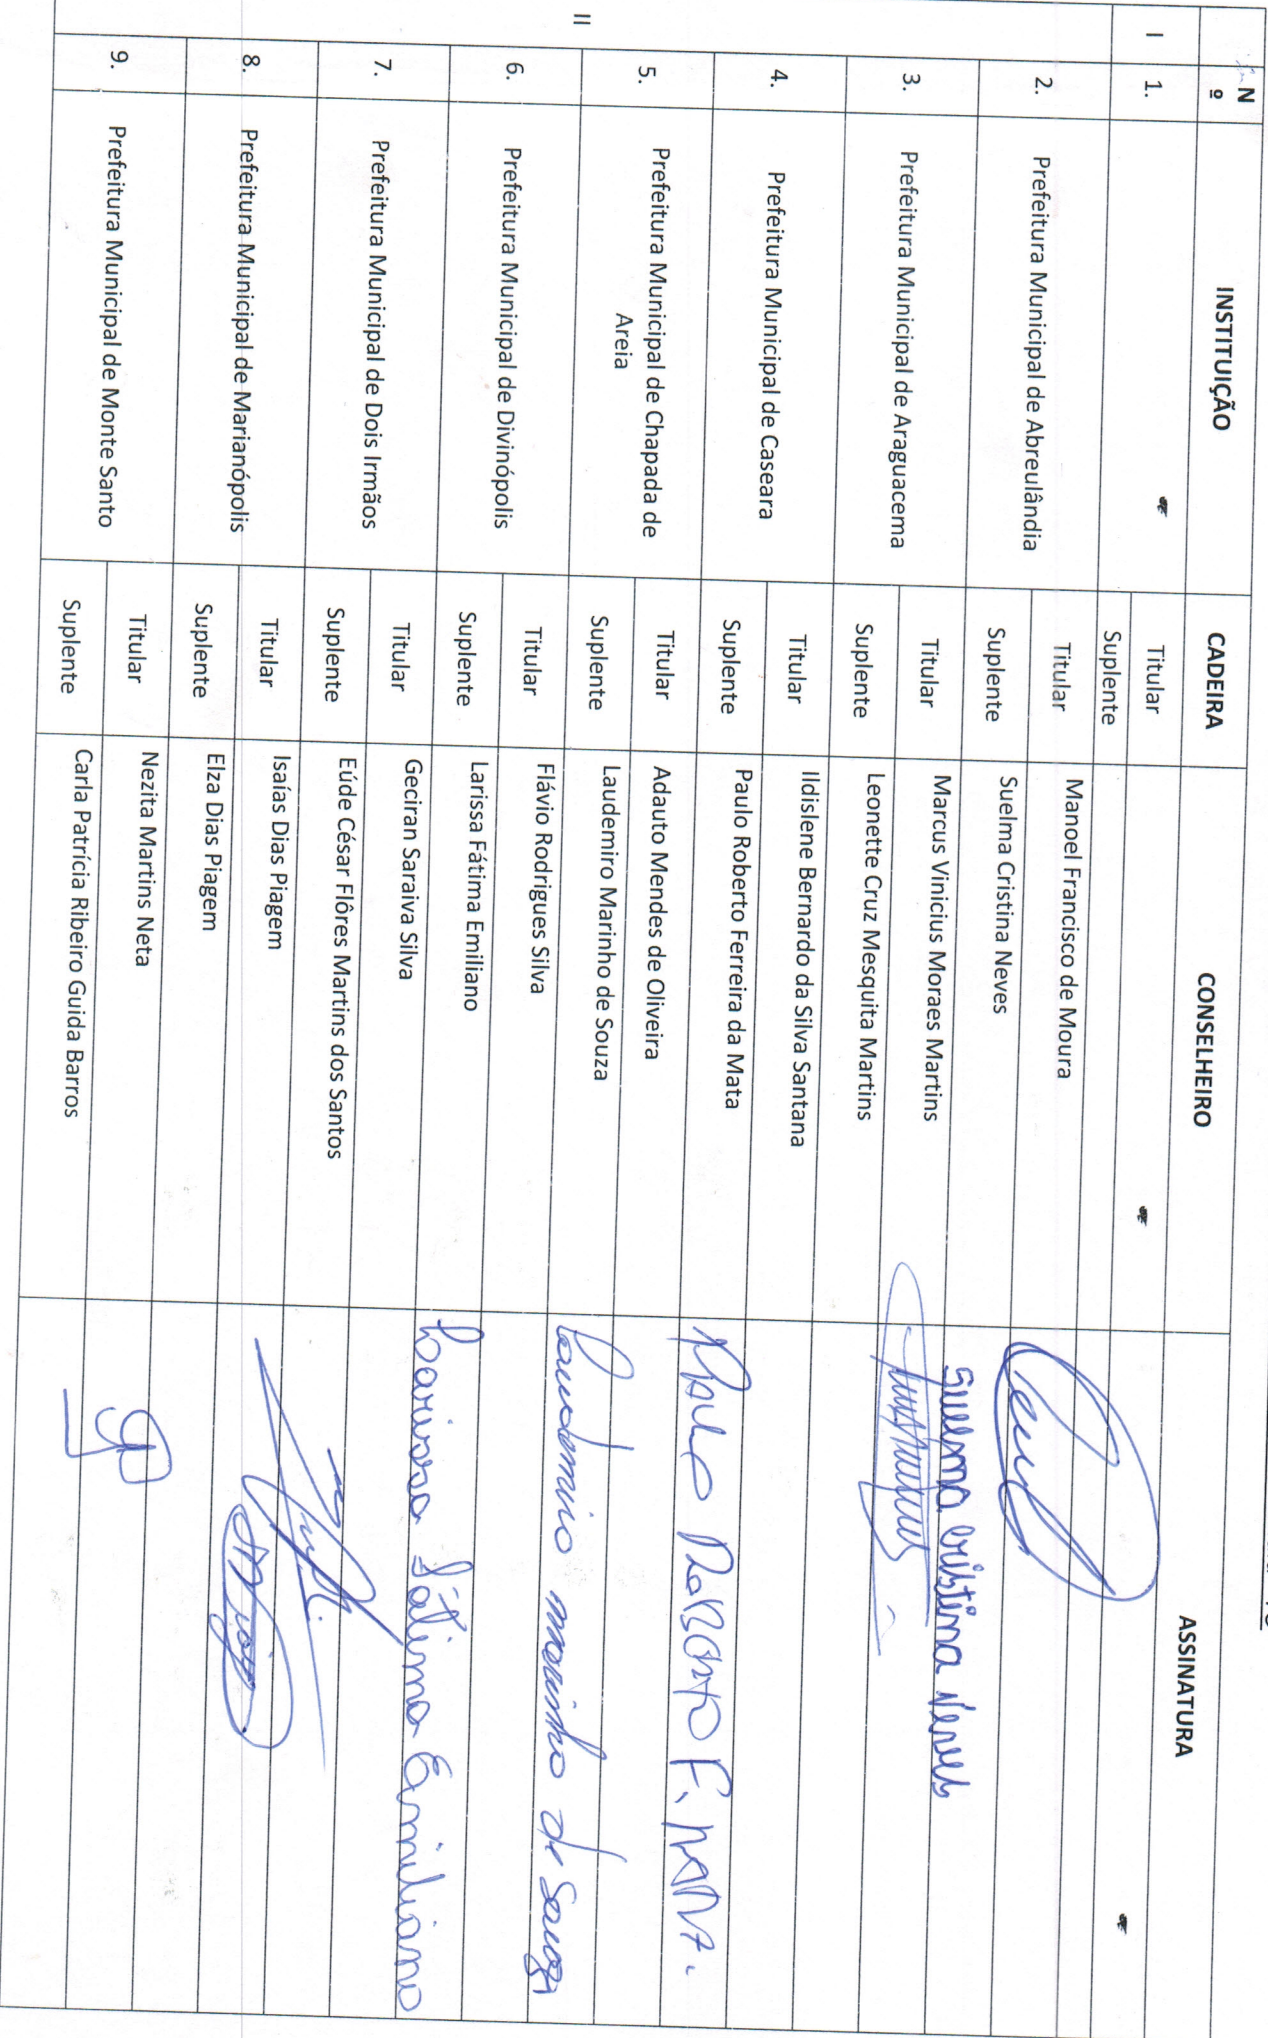 Nº INSTITUIÇÃO CADEIRA CONSELHEIRO ASSINATURA
I 1. Titular
Suplente
II
2. Prefeitura Municipal de Abreulândia Titular Manoel Francisco de Moura
Suplente Suelma Cristina Neves Suelma Cristina Neves
3. Prefeitura Municipal de Araguacema Titular Marcus Vinicius Moraes Martins
Suplente Leonette Cruz Mesquita Martins
4. Prefeitura Municipal de Caseara Titular Ildislene Bernardo da Silva Santana
Suplente Paulo Roberto Ferreira da Mata Paulo Roberto F. Mata.
5. Prefeitura Municipal de Chapada de
Areia
Titular Adauto Mendes de Oliveira
Suplente Laudemiro Marinho de Souza Laudemiro marinho de Souza
6. Prefeitura Municipal de Divinópolis Titular Flávio Rodrigues Silva
Suplente Larissa Fátima Emiliano Larissa Fátima Emiliano
7. Prefeitura Municipal de Dois Irmãos Titular Geciran Saraiva Silva
Suplente Eúde César Flôres Martins dos Santos
8. Prefeitura Municipal de Marianópolis Titular Isaías Dias Piagem
Suplente Elza Dias Piagem
9. Prefeitura Municipal de Monte Santo Titular Nezita Martins Neta
Suplente Carla Patrícia Ribeiro Guida Barros